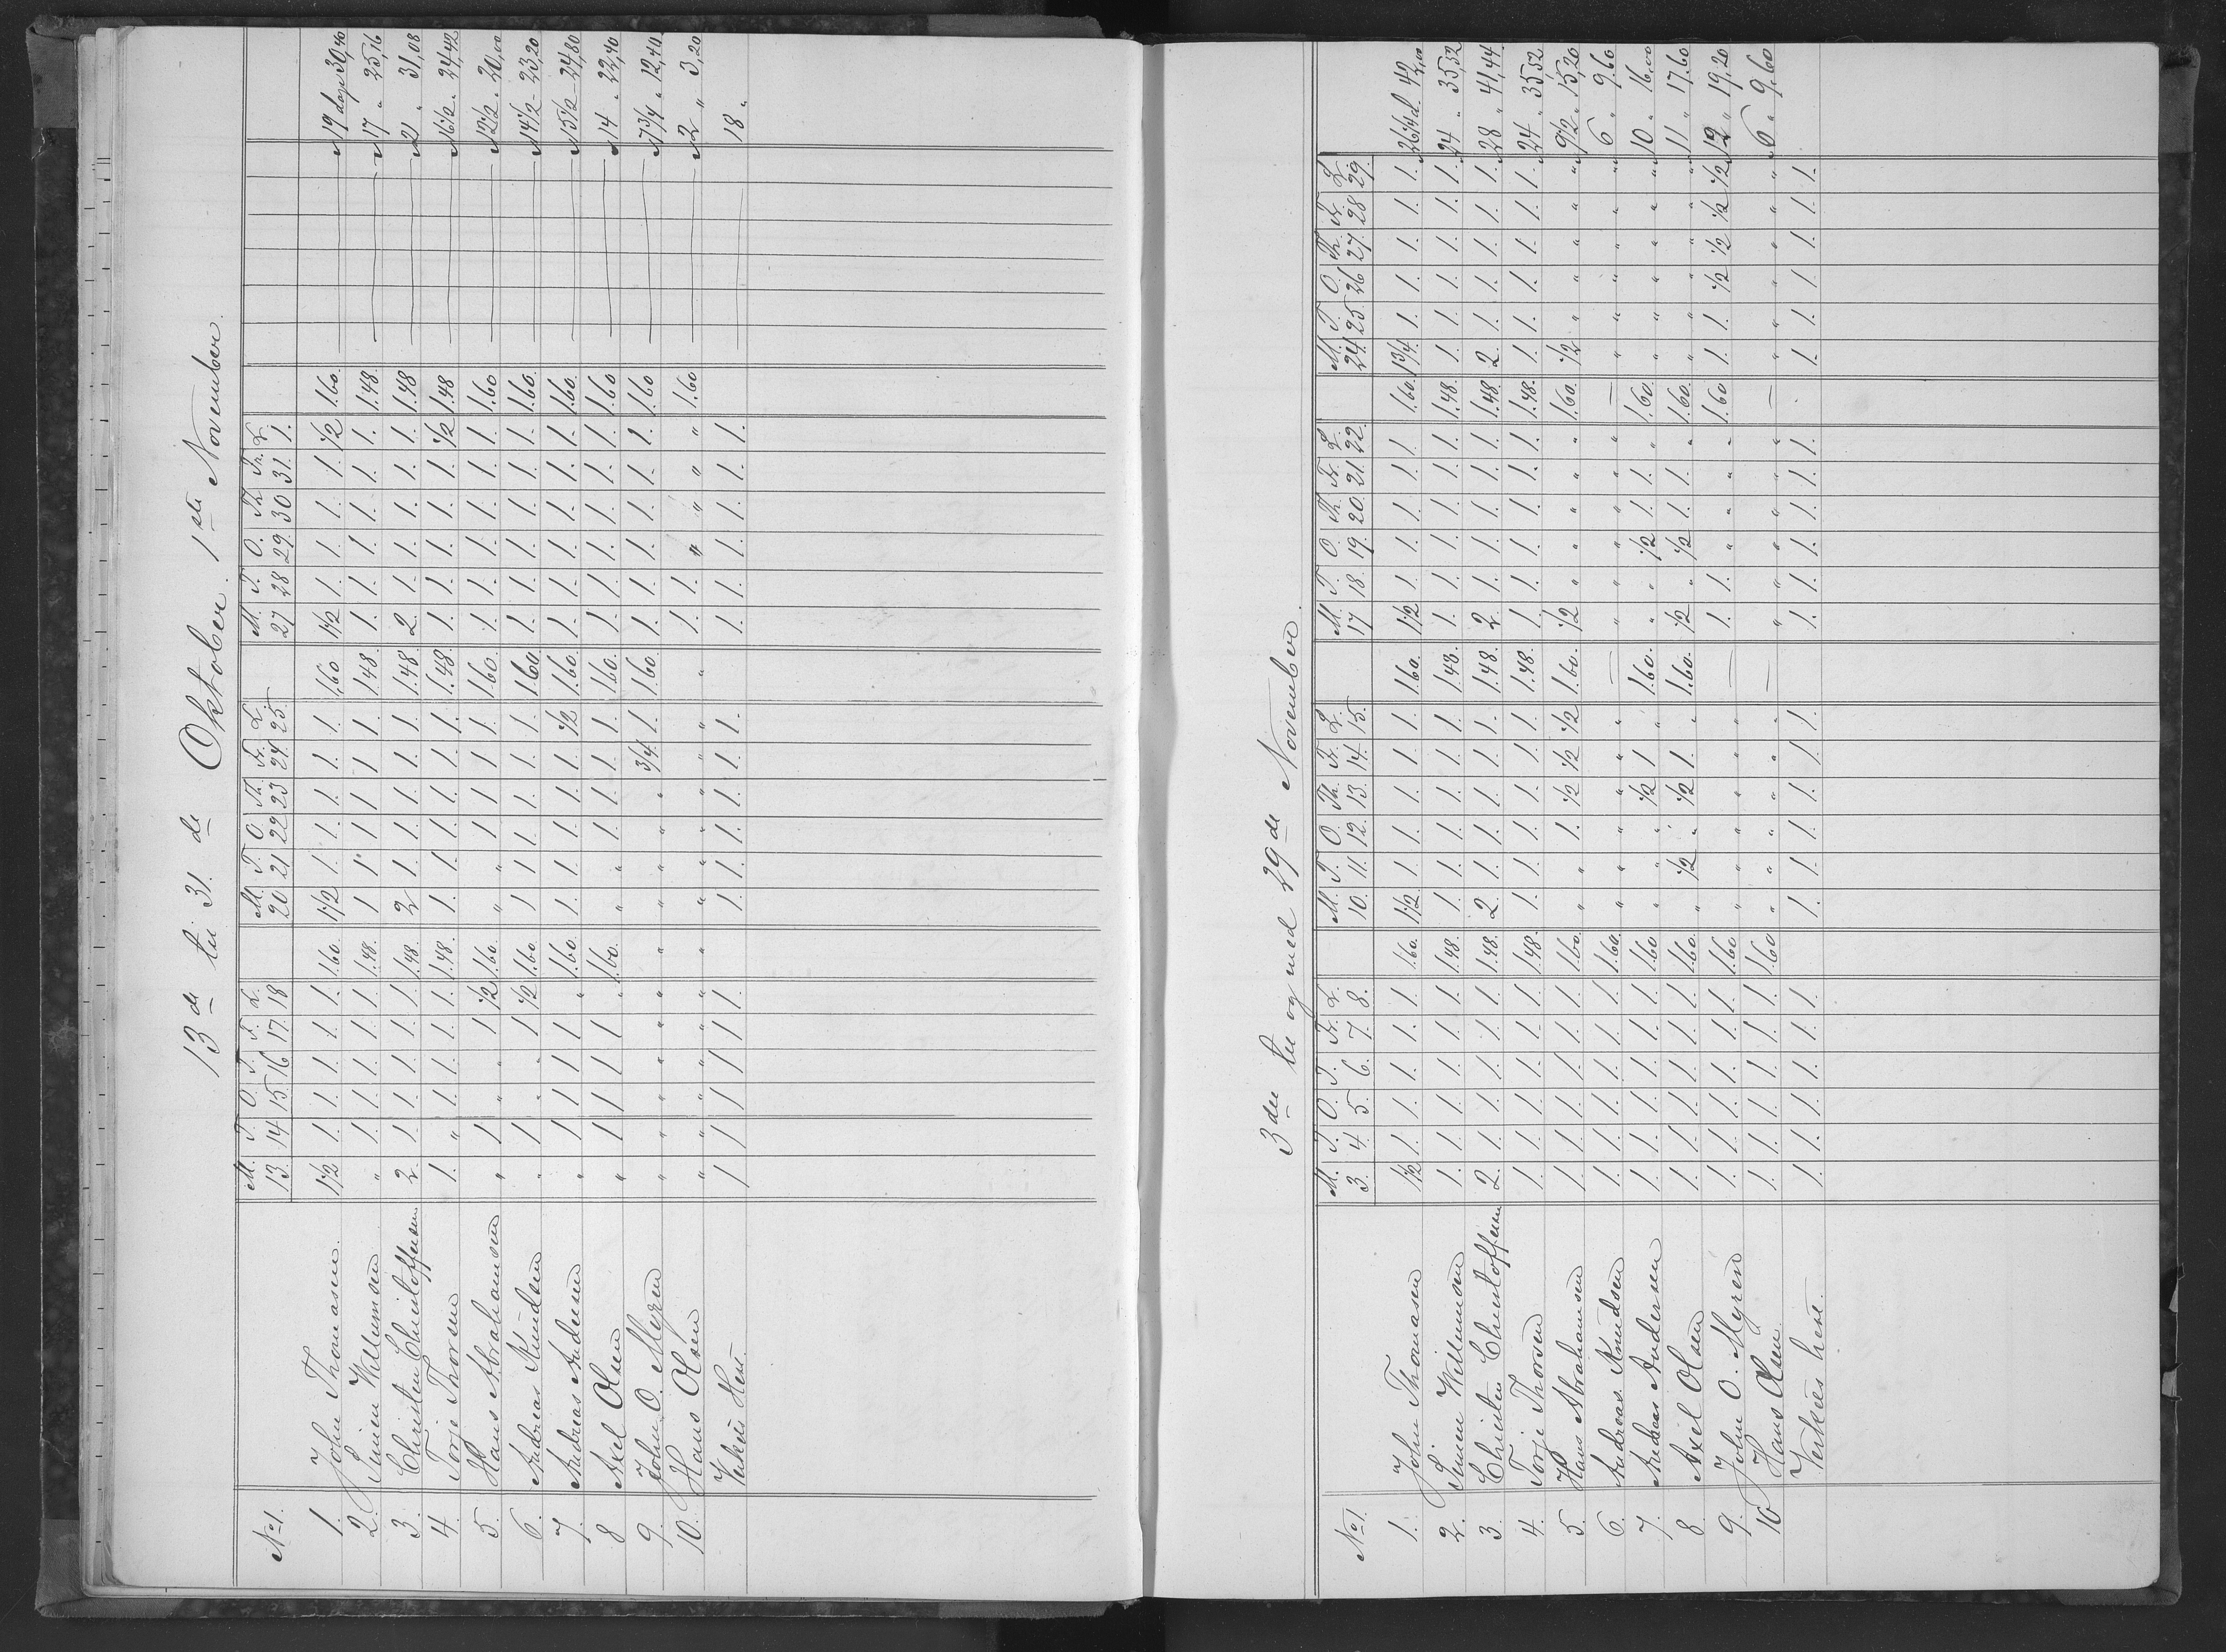 13de til 31.de Oktober. 1ste November.
M. T. O. T. F. L. M. T. O. Th. Fr. L. M. T. O. Th. Fr. L.
No 1. 13. 14 15. 16 17. 18 20 21 22 23 24. 25 27 28 29. 30 31. 1.
1. John Thomasen. 1 1/2 1. 1. 1. 1. 1. 1.60. 1 1/2 1. 1. 1. 1. 1. 1.60 1 1/2 1. 1. 1. 1. 1/2 1.60. 19 dage 30,40
2. Simen Willumsen " 1. 1. 1. 1. 1. 1.48. 1 1 1 1 1 1. 1.48. 1. 1. 1. 1. 1. 1. 1.48. 17 " 25,16
3. Christen Christoffersen 2 1. 1. 1. 1. 1. 1.48 2 1. 1. 1. 1. 1. 1.48 2. 1. 1. 1. 1. 1. 1.48 21 " 31,08
4. Torje Thorsen 1. " 1. 1. 1. 1. 1.48. 1. 1. 1. 1. 1. 1. 1.48. 1. 1. 1. 1. 1. 1/2 1.48 16 1/2 " 24,42
5. Hans Abrahamsen " 1 " " 1 1/2 1.60. " " 1 1 1. 1. 1.60. 1. 1. 1. 1. 1. 1. 1.60 12 1/2 " 20,00
6. Andreas Knudsen " 1 " " 1 1/2 1.60. 1 1 1. 1. 1. 1. 1.60 1. 1. 1. 1. 1. 1. 1.60. 14 1/2 - 23,20
7. Andreas Andersen " 1 1 1 1 " 1.60. 1. 1. 1. 1. 1. 1/2 1.60. 1. 1. 1. 1. 1. 1. 1.60. 15 1/2 - 24,80
8 Axel Olsen " 1 1 1 1 " 1.60. " " 1. 1. 1. 1. 1.60. 1. 1. 1. 1. 1. 1. 1.60 14 " 22,40
9. John O. Myren " " " " " " " " " " " 3/4 1. 1.60. 1. 1. 1. 1. 1. 1. 1.60 7 3/4 " 12,40
10. Hans Olsen " " " " " " " " " " " " " " 1. 1. " " " " 1.60 2 " 3,20
Verkets Hest. 1 1 1 1 1 1. 1. 1. 1. 1. 1. 1. 1. 1. 1. 1. 1. 1. 18 "
3die til og med 29de November.
M. T. O. T. Fr. L. M. T. O. Th. Fr. L. M. T. O. Th. Fr. L. M. T. O. Th. Fr. L.
No 1. 3. 4. 5. 6. 7. 8. 10. 11. 12. 13. 14. 15. 17 18. 19. 20. 21. 22. 24. 25. 26 27. 28 29.
1. John Thomasen 1 1/2 1. 1. 1. 1. 1. 1.60. 1 1/2 1. 1. 1. 1. 1. 1.60. 1 1/2 1. 1. 1. 1. 1. 1.60. 1 3/4. 1. 1. 1. 1. 1. 26 1/4 d. 42,00
2. Simen Willumsen 1. 1. 1. 1. 1. 1. 1.48. 1. 1. 1. 1. 1. 1. 1.48. 1. 1. 1. 1. 1. 1. 1.48. 1. 1. 1. 1. 1. 1. 24 " 35,52
3. Christen Christoffersen 2. 1. 1. 1. 1. 1. 1.48. 2. 1. 1. 1. 1. 1. 1.48. 2 1. 1. 1. 1. 1. 1.48 2. 1. 1. 1. 1. 1. 28 " 41,44
4. Torje Thorsen 1. 1. 1. 1. 1. 1. 1.48. 1. 1. 1. 1. 1. 1. 1.48. 1. 1. 1. 1. 1. 1. 1.48. 1. 1. 1. 1. 1. 1. 24 " 35,52
5. Hans Abrahamsen 1. 1. 1. 1. 1. 1. 1.60. " " 1. 1/2 1/2 1/2 1.60. 1/2 " " " " " 1.60. 1/2 " " " " " 9 1/2 " 15,20
6. Andreas Knudsen 1. 1. 1. 1. 1. 1. 1.60. " " " " " " — " " " " " " — " " " " " " 6 " 9,60
7. Andreas Andersen 1. 1. 1. 1. 1. 1. 1.60 " " " 1/2 1 " 1.60. " " 1/2 1. 1. " 1.60. " " " " " " 10 " 16,00
8 Axel Olsen 1. 1. 1. 1. 1. 1. 1.60. " 1/2 " 1/2 1. " 1.60. 1/2 " 1/2 1. 1. " 1.60. " " " " " " 11 " 17,60
9. John O. Myren 1. 1. 1. 1. 1. 1. 1.60 " " " " " " — 1. 1. " " " " 1.60 1. 1. 1/2 1/2 1/2 1/2 12 " 19,20
10 Hans Olsen 1. 1. 1. 1. 1. 1. 1.60 " " " " " " — " " " " " " — " " " " " " 6 " 9,60
Verkets hest. 1. 1. 1. 1. 1. 1. 1. 1. 1. 1. 1. 1. 1. 1. 1. 1. 1. 1. 1. 1. 1. 1. 1. 1.